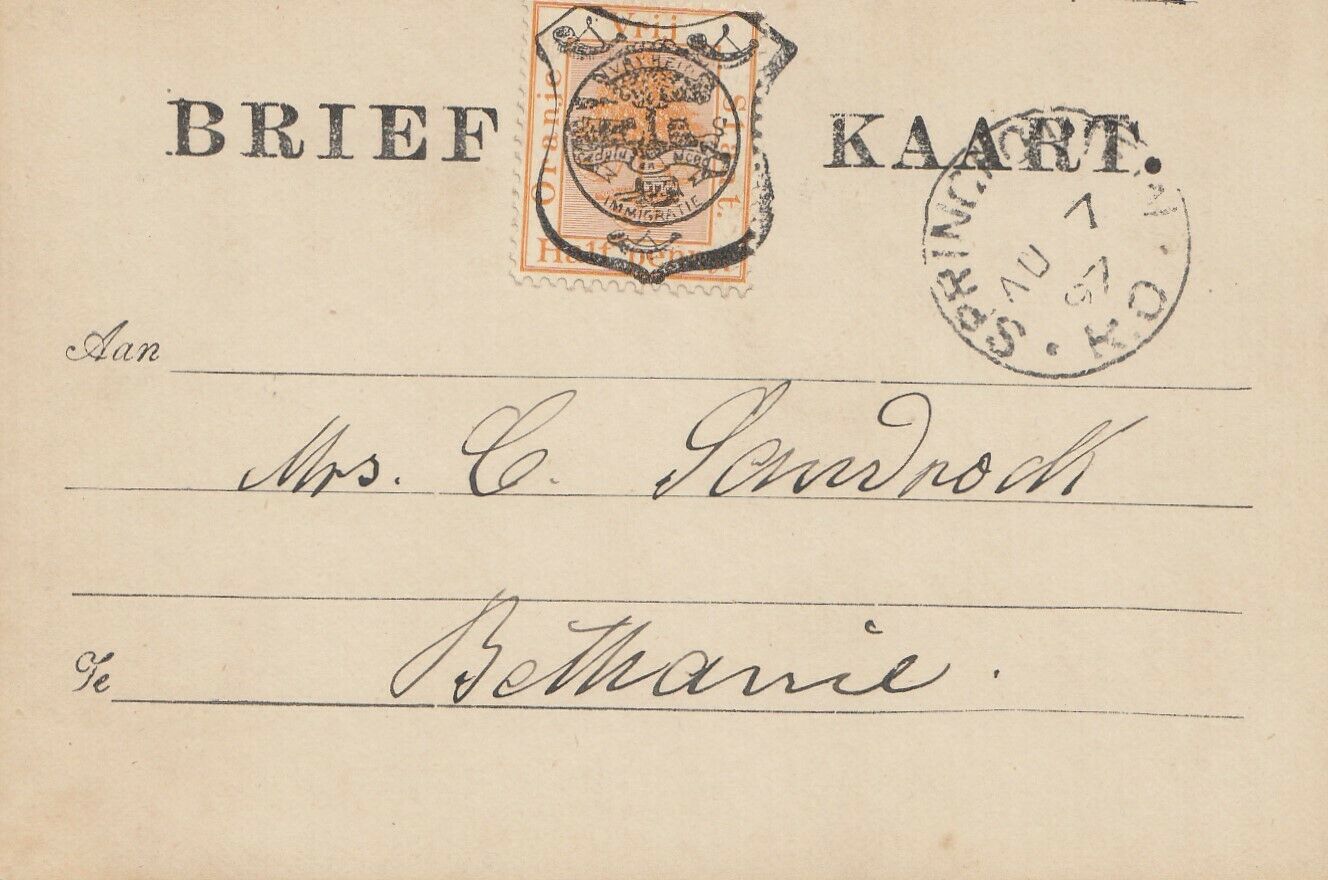 BRIEF KAART.
Oranje Vrij Staat.
VRYHEID
GEDULD EN MOED
IMMIGRATIE
Half penny
AU 7
97
R.O
Aan
Mrs. C. Sandrock
Te Bethanie.